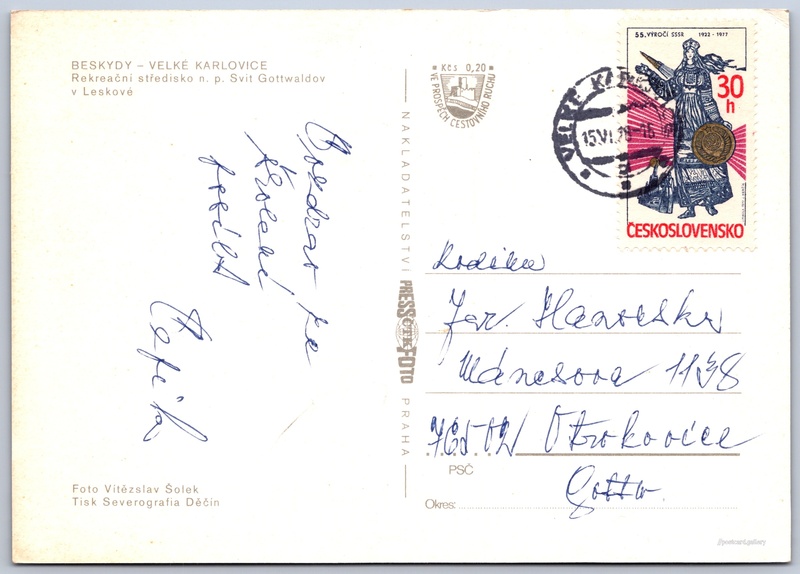 BESKYDY – VELKÉ KARLOVICE
Rekreační středisko n. p. Svit Gottwaldov
v Leskové
Pozdrav ze
školení
posílá
Foto Vítězslav Šolek
Tisk Severografia Děčín
Kčs 0,20
VE PROSPĚCH CESTOVNÍHO RUCHU
NAKLADATELSTVÍ
PRESSFOTO
PRAHA
55. VÝROČÍ SSSR 1922 - 1977
30
h
ČESKOSLOVENSKO
VELKÉ
15.VI.
a
Rodina
Jar.
Mánesova 1138
765 02 Otrokovice
PSČ
Gottw.
Okres: